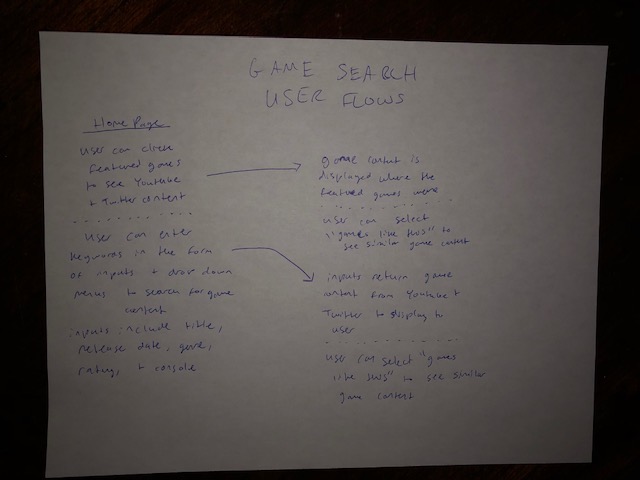 GAME SEARCH
USER FLOWS
Home Page
user can click
featured games
to see Youtube
+ Twitter content
user can enter
keywords in the form
of inputs + drop down
menus to search for game
content
inputs include title,
release date, genre,
rating, + console
game content is
displayed where the
featured games were
user can select
"games like this" to
see similar game content
inputs return game
content from Youtube +
Twitter to display to
user
user can select "games
like this" to see similar
game content